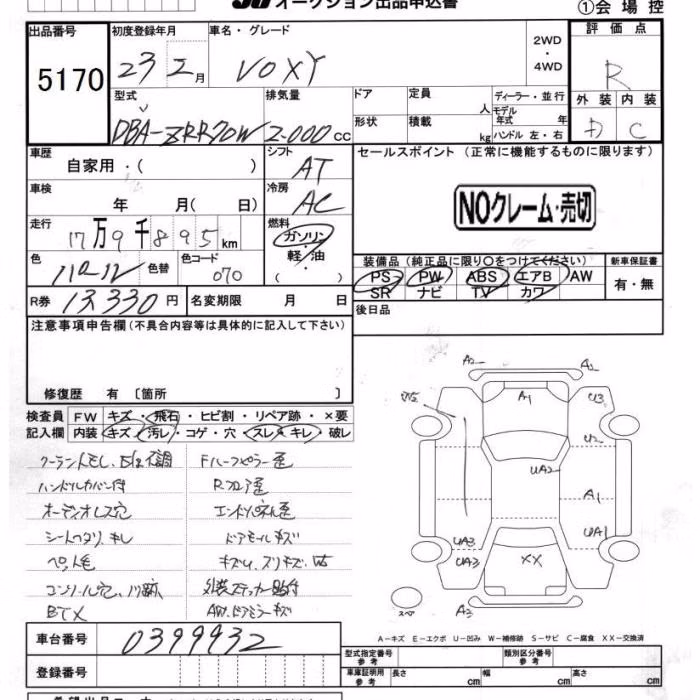 オークション出品申込書
①会場控
出品番号
5170
初度登録年月
23 2月
車名・グレード
VOXY
2WD
・
4WD
評価点
R
型式
DBA-ZRR70W
排気量
2.000cc
ドア
定員
人
ディーラー・並行
モデル年式 年
形状
積載
kg
ハンドル 左・右
外装
内装
D
C
車歴
自家用・( )
シフト
AT
セールスポイント (正常に機能するものに限ります)
NOクレーム・売切
車検
年 月( 日)
冷房
AC
走行
17万9千895km
燃料
ガソリン
・
軽・油
( )
色
色替
色コード
070
装備品 (純正品に限り○をつけてください)
PS PW ABS エアB AW
SR ナビ TV カワ
新車保証書
有・無
R券
13,330円
名変期限 月 日
後日品
注意事項申告欄 (不具合内容等は具体的に記入して下さい)
修復歴 有 〔箇所 〕
検査員記入欄
FW キズ・飛石・ヒビ割・リペア跡・×要
内装 キズ・汚レ・コゲ・穴・スレ・キレ・破レ
ハンドルカバー付
オーディオレス穴
BTX
ドアモールキズ
外装ステッカー貼付
AW、ドアミラーキズ
A2
A2
A1
U3
U2
UA2
A1
UA1
UA3
UA3
XX
A3
スペア
A-キズ E-エクボ U-凹み W-補修跡 S-サビ C-腐食 XX-交換済
車台番号
0399932
登録番号
型式指定番号
参考
類別区分番号
参考
車庫証明用
参考
長さ cm
幅 cm
高さ cm